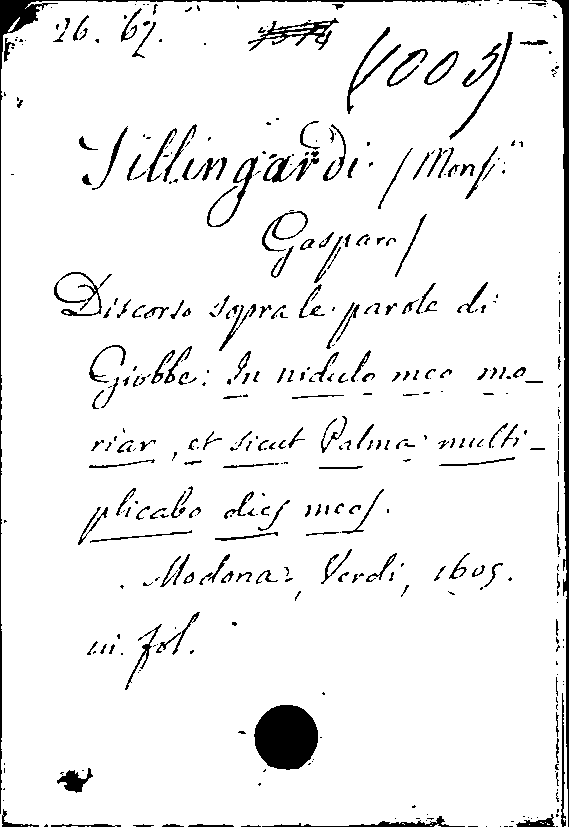 26. 67.
(1005)
Sillingardi. / Monsr.
Gaspare /
Discorso sopra le parole di
Giobbe: In nidulo meo mo-
riar, et sicut Palma multi-
plicabo dies meos.
Modona, Verdi, 1605.
in fol.